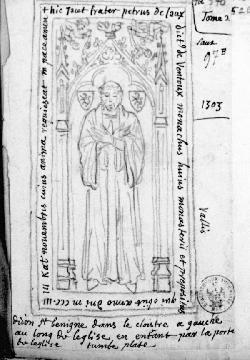 + hic Jacet frater petrus de Saux
dict⁹ de Ventoux monachus huius monasterii et
qui obiit anno dni m ccc iii
iii kal nouembris cuius anima requiescat in pace amen
Tome 2
1303
Vallis
Dijon St benigne dans le cloitre a gauche
au long de leglise en entrant par la porte
de leglise tumbe plate